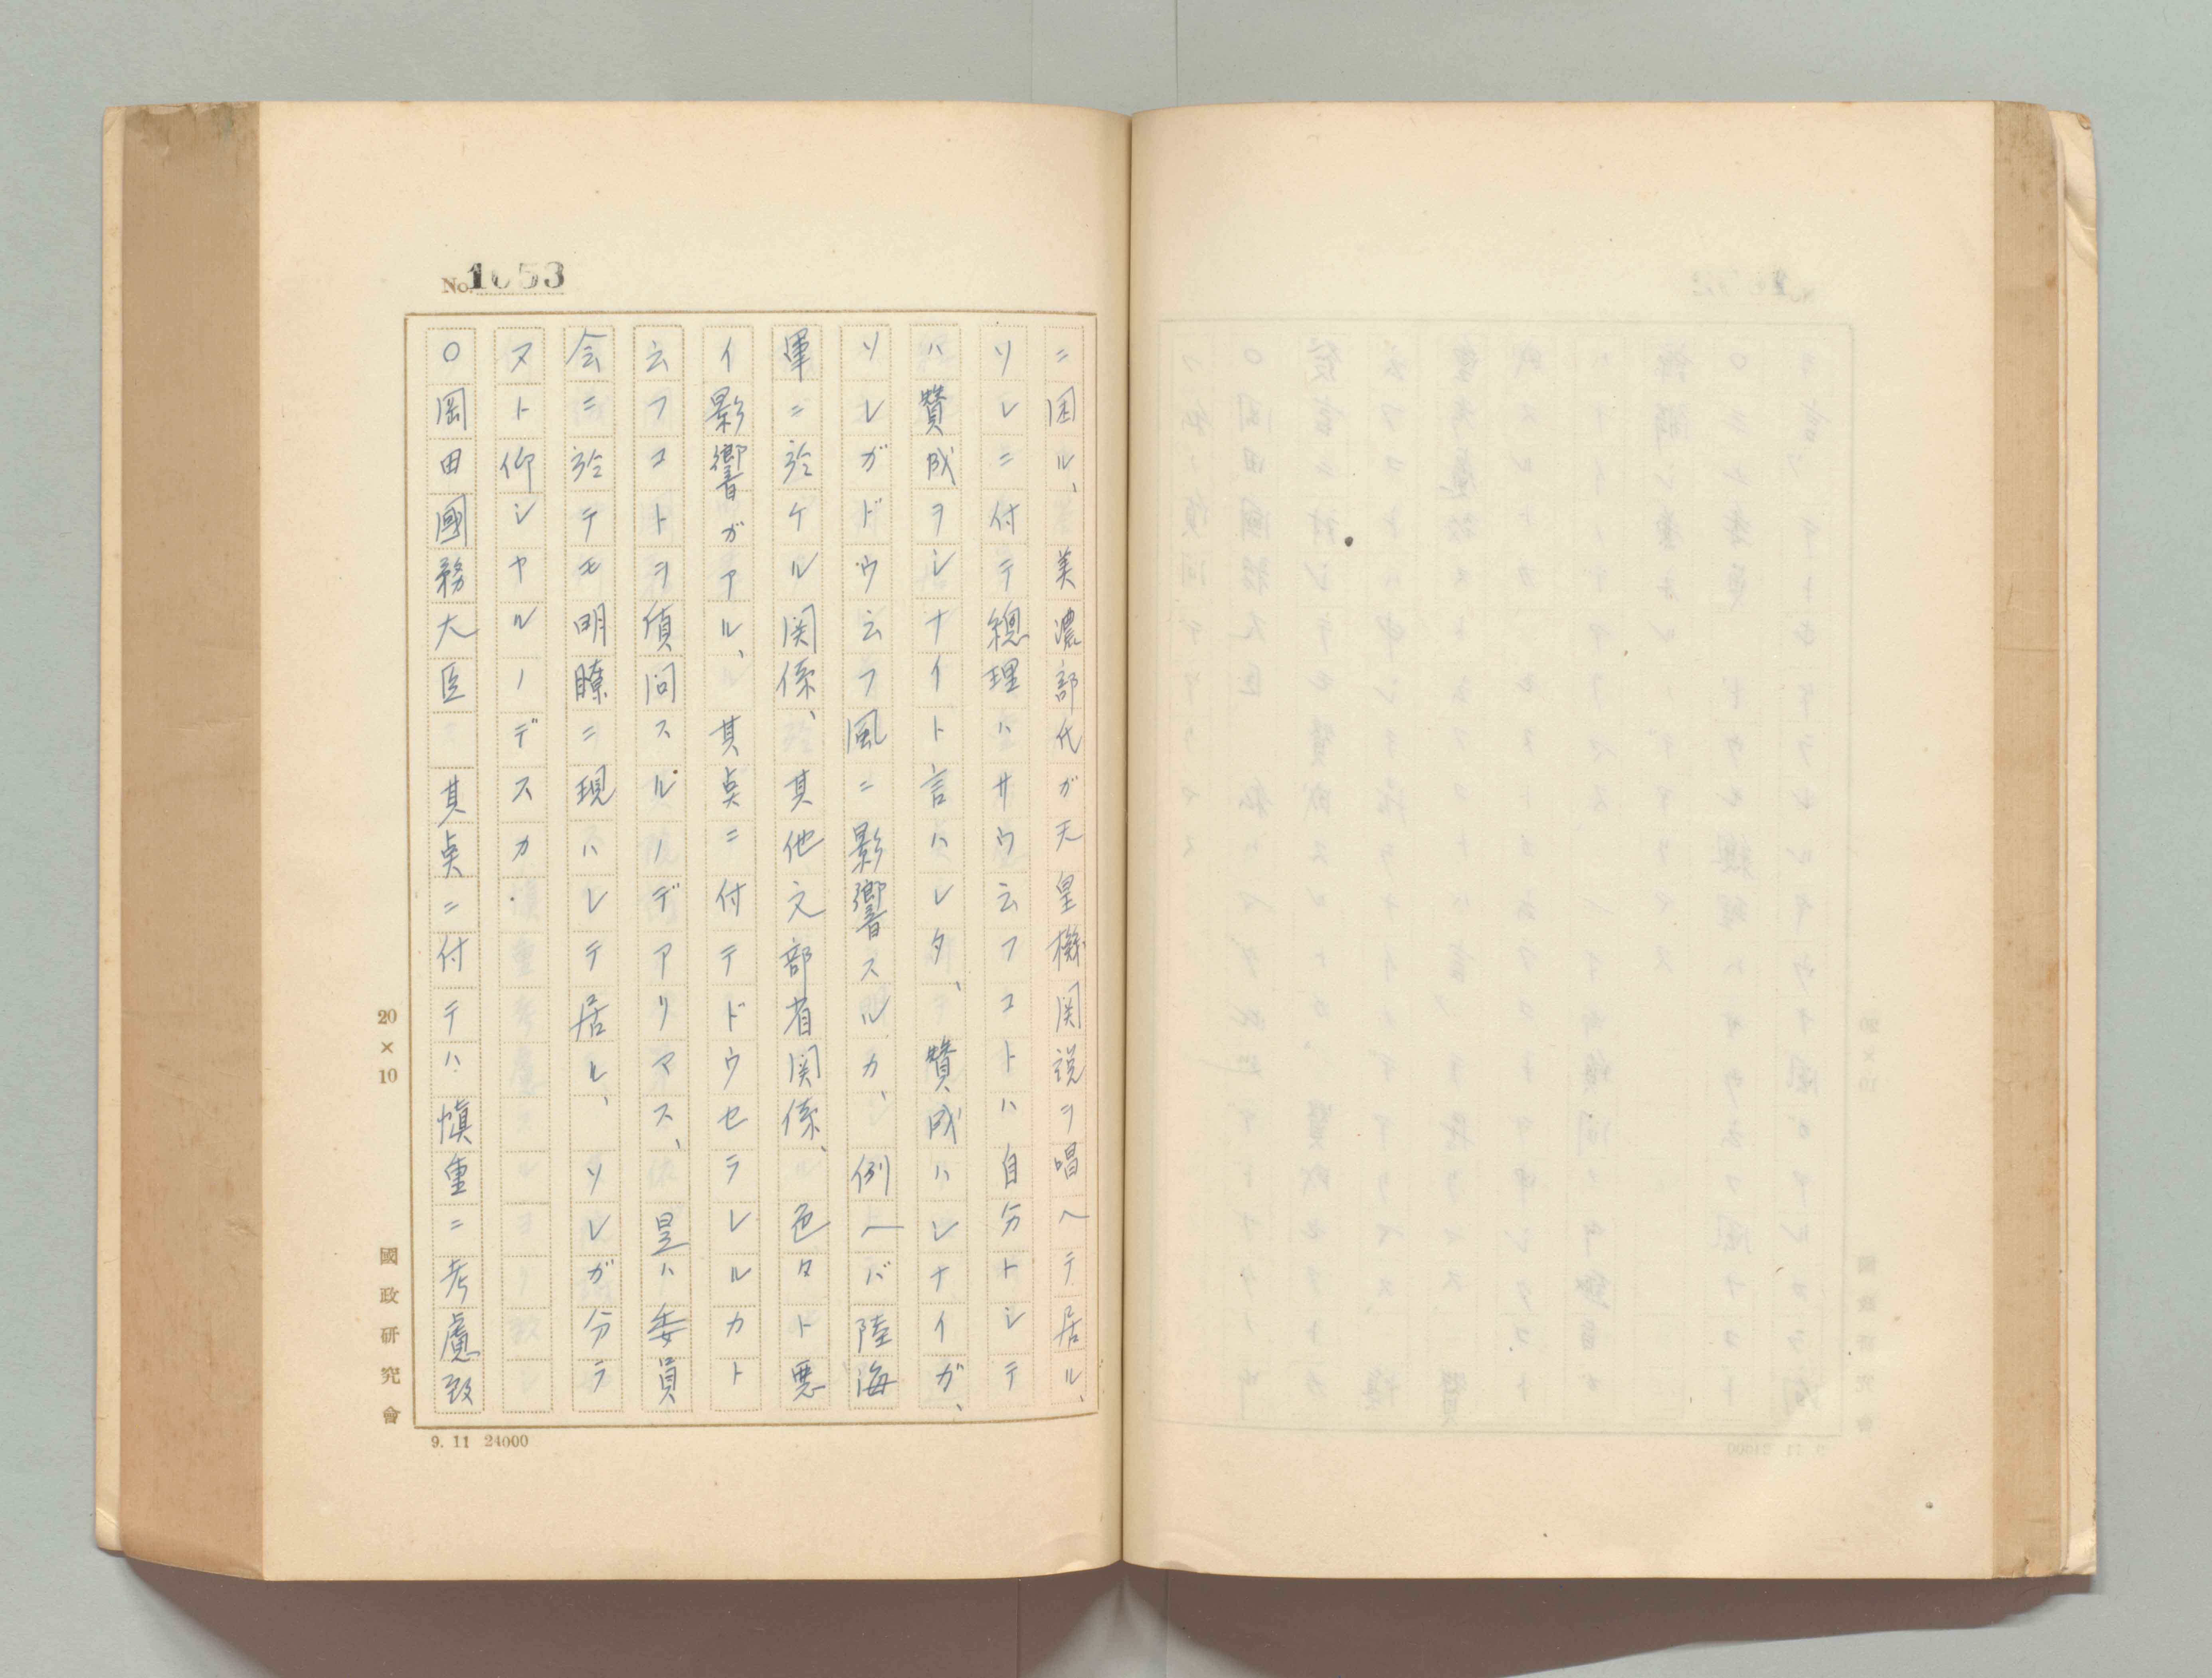 No. 1053
ニ困ル、美濃部代ガ天皇機関説ヲ唱ヘテ居ル、
ソレニ付テ總理ハサウ云フコトハ自分トシテ
ハ賛成ヲシナイト言ハレタ、賛成ハシナイガ、
ソレガドウ云フ風ニ影響スルカ、例ヘバ陸海
軍ニ於ケル関係、其他文部省関係、色々ト悪
イ影響ガアル、其点ニ付テドウセラレルカト
云フコトヲ質問スルノデアリマス、是ハ委員
会ニ於テモ明瞭ニ現ハレテ居ル、ソレガ分ラ
ヌト仰シヤルノデスカ
○岡田國務大臣 其点ニ付テハ慎重ニ考慮致
20×10
國政研究會
9. 11 24000